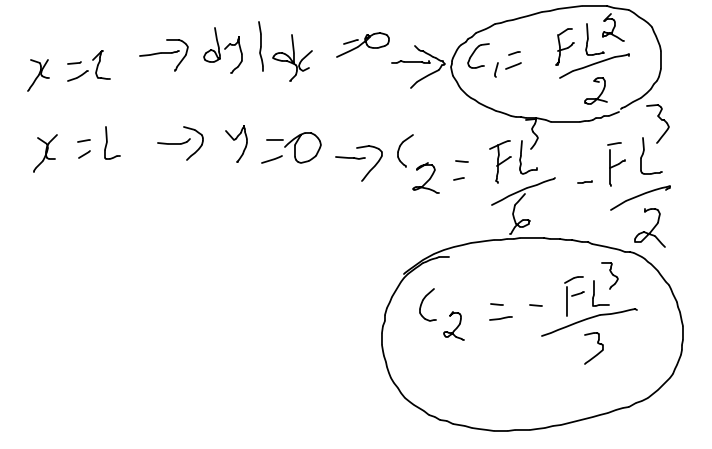 x = L → dy/dx = 0 → C₁ = FL²/2
x = L → y = 0 → C₂ = FL³/6 - FL³/2
C₂ = - FL³/3